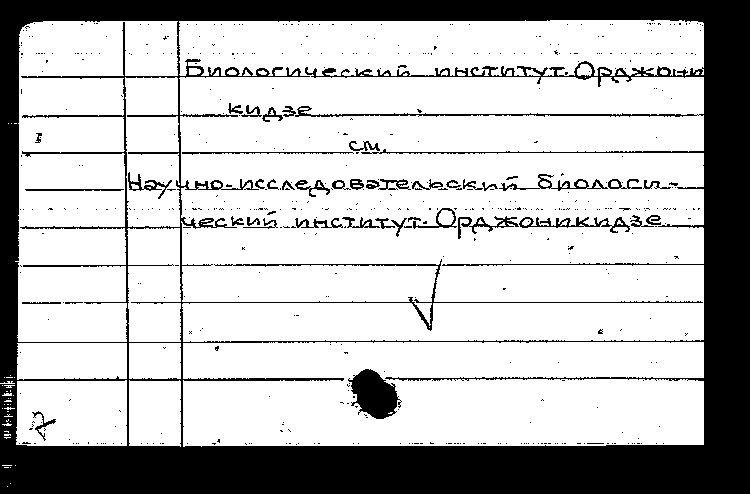 Биологический институт. Орджони
кидзе
см.
Научно-исследовательский биологи-
ческий институт. Орджоникидзе.